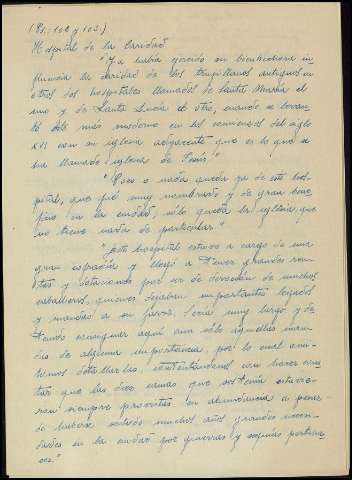 (Pt. 102 y 103.)
Hospital de la Caridad
"Ya había ejercido su bienhechora in
fluencia la caridad de los trujillanos antiguos en
otros dos hospitales llamados de Santa María el
uno y de Santa Lucía el otro, cuando se levan
tó éste más moderno en los comienzos del siglo
XVI con su iglesia adyacente que es lo que se
ha llamado iglesia de Jesús."
"Poco o nada queda ya de este hos
pital, que fué muy nombrado y de gran bene
ficio en la ciudad, sólo queda la iglesia que
no tiene nada de particular."
"Este hospital estuvo a cargo de una
gran cofradía y llegó a tener grandes ren
tas y dotaciones por ser de devoción de muchos
caballeros, quienes dejaban importantes legados
y mandas a su favor. Sería muy largo y de
tenido consignar aquí aun sólo aquellas man
das de alguna importancia, por lo cual omi
timos detallarlas, contentándonos con hacer cons
tar que las doce camas que sostenía estuvie
ron siempre provistas en abundancia a pesar
de haberse sentido muchos años grandes nece
sidades en la ciudad por guerras y sequías pertina
ces."